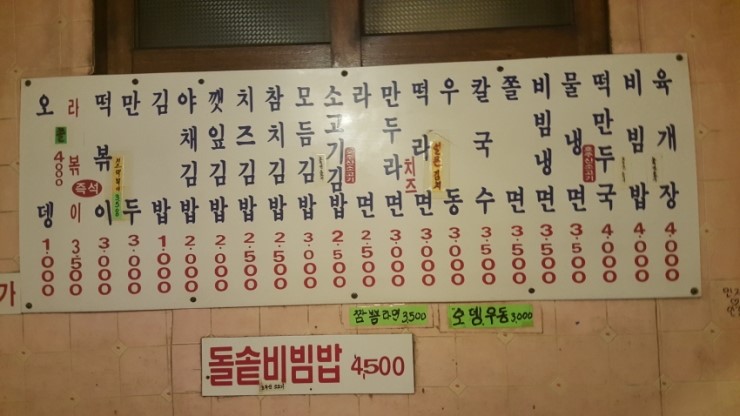 오뎅 1.000
라볶이 3.500
4000
즉석
떡볶이 3.000
만두 3.000
김밥 1.500
야채김밥 2.000
깻잎김밥 2.000
치즈김밥 2.500
참치김밥 2.500
모듬김밥 3.000
소고기김밥 2.500
라면 2.500
만두라면 3.000
떡라면 3.000
치즈
우동 3.000
칼국수 3.500
쫄면 3.500
비빔냉면 3.500
물냉면 3.500
떡만두국 4.000
비빔밥 4.000
육개장 4.000
가
짬뽕라면 3,500
오뎅우동 3,000
돌솥비빔밥 4,500